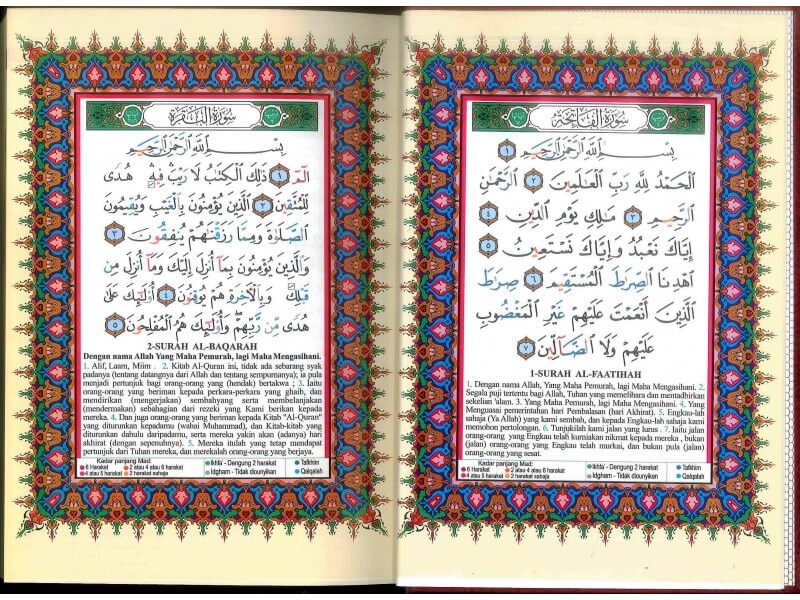 سورة الفاتحة
بِسْمِ ٱللَّهِ ٱلرَّحْمَٰنِ ٱلرَّحِيمِ ١
ٱلْحَمْدُ لِلَّهِ رَبِّ ٱلْعَٰلَمِينَ ٢ ٱلرَّحْمَٰنِ
ٱلرَّحِيمِ ٣ مَٰلِكِ يَوْمِ ٱلدِّينِ ٤
إِيَّاكَ نَعْبُدُ وَإِيَّاكَ نَسْتَعِينُ ٥
ٱهْدِنَا ٱلصِّرَٰطَ ٱلْمُسْتَقِيمَ ٦ صِرَٰطَ
ٱلَّذِينَ أَنْعَمْتَ عَلَيْهِمْ غَيْرِ ٱلْمَغْضُوبِ
عَلَيْهِمْ وَلَا ٱلضَّآلِّينَ ٧
1-SURAH AL-FAATIHAH
1. Dengan nama Allah, Yang Maha Pemurah, lagi Maha Mengasihani. 2.
Segala puji tertentu bagi Allah, Tuhan yang memelihara dan mentadbirkan
sekelian 'alam. 3. Yang Maha Pemurah, lagi Maha Mengasihani. 4. Yang
Menguasai pemerintahan hari Pembalasan (hari Akhirat). 5. Engkau-lah
sahaja (Ya Allah) yang kami sembah, dan kepada Engkau-lah sahaja kami
memohon pertolongan. 6. Tunjukilah kami jalan yang lurus . 7. Iaitu jalan
orang-orang yang Engkau telah kurniakan nikmat kepada mereka , bukan
(jalan) orang-orang yang Engkau telah murkai, dan bukan pula (jalan)
orang-orang yang sesat.
Kadar panjang Mad:
6 Harakat 2 atau 4 atau 6 harakat Ikhfa' - Dengung 2 harakat Tafkhim
4 atau 5 harakat 2 harakat sahaja Idgham - Tidak dibunyikan Qalqalah
سورة البقرة
بِسْمِ ٱللَّهِ ٱلرَّحْمَٰنِ ٱلرَّحِيمِ
الٓمٓ ١ ذَٰلِكَ ٱلْكِتَٰبُ لَا رَيْبَ ۛ فِيهِ ۛ هُدًى
لِّلْمُتَّقِينَ ٢ ٱلَّذِينَ يُؤْمِنُونَ بِٱلْغَيْبِ وَيُقِيمُونَ
ٱلصَّلَوٰةَ وَمِمَّا رَزَقْنَٰهُمْ يُنفِقُونَ ٣
وَٱلَّذِينَ يُؤْمِنُونَ بِمَآ أُنزِلَ إِلَيْكَ وَمَآ أُنزِلَ مِن
قَبْلِكَ وَبِٱلْءَاخِرَةِ هُمْ يُوقِنُونَ ٤ أُو۟لَٰٓئِكَ عَلَىٰ
هُدًى مِّن رَّبِّهِمْ ۖ وَأُو۟لَٰٓئِكَ هُمُ ٱلْمُفْلِحُونَ ٥
2-SURAH AL-BAQARAH
Dengan nama Allah Yang Maha Pemurah, lagi Maha Mengasihani.
1. Alif, Laam, Miim . 2. Kitab Al-Quran ini, tidak ada sebarang syak
padanya (tentang datangnya dari Allah dan tentang sempurnanya); ia pula
menjadi petunjuk bagi orang-orang yang (hendak) bertakwa ; 3. Iaitu
orang-orang yang beriman kepada perkara-perkara yang ghaib, dan
mendirikan (mengerjakan) sembahyang serta membelanjakan
(mendermakan) sebahagian dari rezeki yang Kami berikan kepada
mereka. 4. Dan juga orang-orang yang beriman kepada Kitab "Al-Quran"
yang diturunkan kepadamu (wahai Muhammad), dan Kitab-kitab yang
diturunkan dahulu daripadamu, serta mereka yakin akan (adanya) hari
akhirat (dengan sepenuhnya). 5. Mereka itulah yang tetap mendapat
petunjuk dari Tuhan mereka, dan merekalah orang-orang yang berjaya.
Kadar panjang Mad:
6 Harakat 2 atau 4 atau 6 harakat Ikhfa' - Dengung 2 harakat Tafkhim
4 atau 5 harakat 2 harakat sahaja Idgham - Tidak dibunyikan Qalqalah